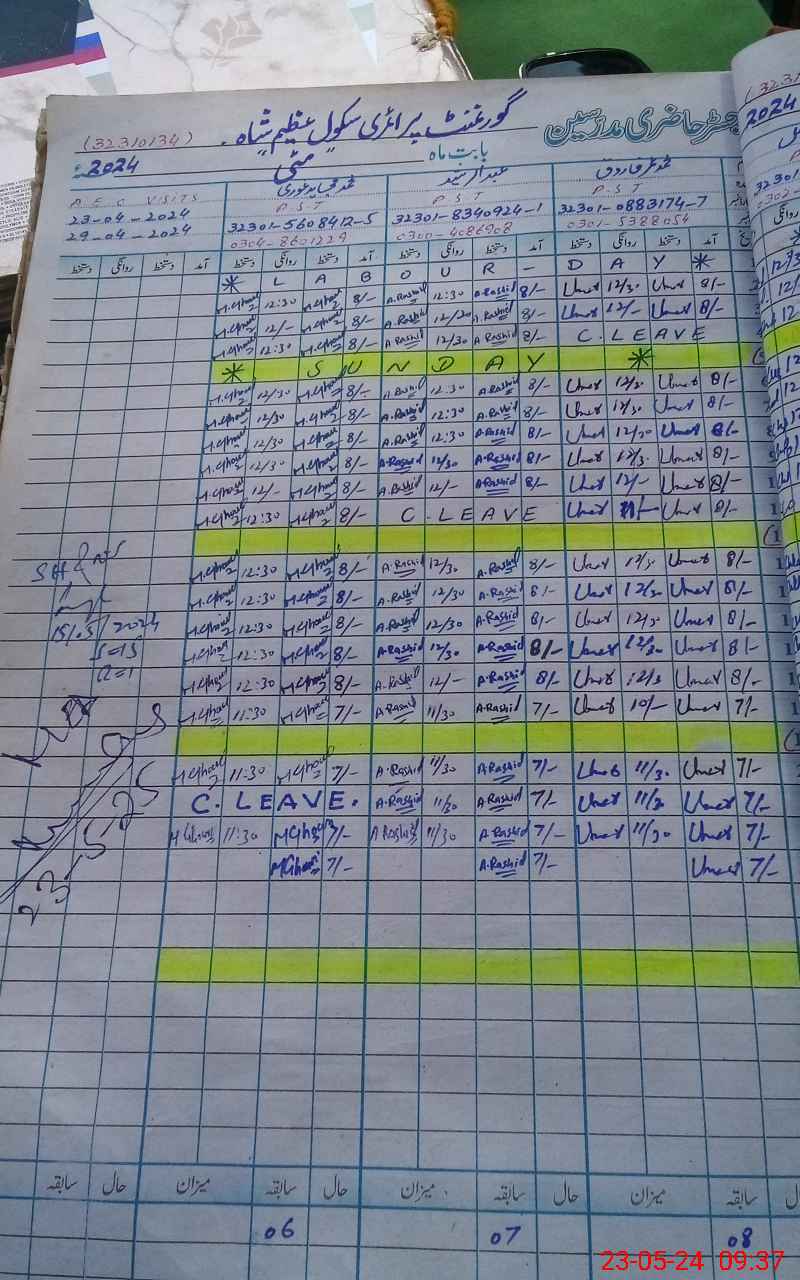 رجسٹر حاضری مدرسین گورنمنٹ پرائمری سکول عظیم شاہ . (32310134)
بابت ماہ مئی 2024ء
محمد عمر فاروق عبدالرشید A E O VISITS
P S T P S T P S T 23-04-2024
32301-0883174-7 32301-8340924-1 32301-5608412-5 29-04-2024
0301-5388054 0300-4086908 0304-8601229
آمد دستخط روانگی دستخط آمد دستخط روانگی دستخط آمد دستخط روانگی دستخط آمد دستخط روانگی دستخط
* L A B O U R - D A Y *
M.Ghouri 12:30 M.Ghouri 8/- A.Rashid 12:30 A.Rashid 8/- Umar 12/30 Umar 8/-
M.Ghouri 12/- M.Ghouri 8/- A.Rashid 12/20 A.Rashid 8/- Umar 12/- Umar 8/-
M.Ghouri 12:30 M.Ghouri 8/- A.Rashid 12/30 A.Rashid 8/- C. LEAVE
* S U N D A Y *
M.Ghouri 12/30 M.Ghouri 8/- A.Rashid 12:30 A.Rashid 8/- Umar 12/30 Umar 8/-
M.Ghouri 12/30 M.Ghouri 8/- A.Rashid 12:30 A.Rashid 8/- Umar 12/30 Umar 8/-
M.Ghouri 12/30 M.Ghouri 8/- A.Rashid 12:30 A.Rashid 8/- Umar 12/30 Umar 8/-
M.Ghouri 12/30 M.Ghouri 8/- A.Rashid 12/30 A.Rashid 8/- Umar 12/30 Umar 8/-
M.Ghouri 12/- M.Ghouri 8/- A.Rashid 12/- A.Rashid 8/- Umar 12/- Umar 8/-
M.Ghouri 12:30 M.Ghouri 8/- C. LEAVE Umar Umar 8/-
M.Ghouri 12:30 M.Ghouri 8/- A.Rashid 12/30 A.Rashid 8/- Umar 12/30 Umar 8/-
M.Ghouri 12:30 M.Ghouri 8/- A.Rashid 12/30 A.Rashid 8/- Umar 12/30 Umar 8/-
M.Ghouri 12:30 M.Ghouri 8/- A.Rashid 12/30 A.Rashid 8/- Umar 12/30 Umar 8/-
15/05/2024
M.Ghouri 12:30 M.Ghouri 8/- A.Rashid 12/30 A.Rashid 8/- Umar 12/30 Umar 8/-
M.Ghouri 12:30 M.Ghouri 8/- A.Rashid 12/- A.Rashid 8/- Umar 12/3 Umar 8/-
M.Ghouri 11:30 M.Ghouri 7/- A.Rashid 11/30 A.Rashid 7/- Umar 10/- Umar 7/-
M.Ghouri 11:30 M.Ghouri 7/- A.Rashid 11/30 A.Rashid 7/- Umar 11/30 Umar 7/-
C. LEAVE. A.Rashid 11/30 A.Rashid 7/- Umar 11/30 Umar 7/-
M.Ghouri 11:30 M.Ghouri 7/- A.Rashid 11/30 A.Rashid 7/- Umar 11/30 Umar 7/-
M.Ghouri 7/- A.Rashid 7/- Umar 7/-
23-5-25
سابقہ میزان حال سابقہ میزان حال سابقہ میزان حال سابقہ
08 07 06
23-05-24 09:37